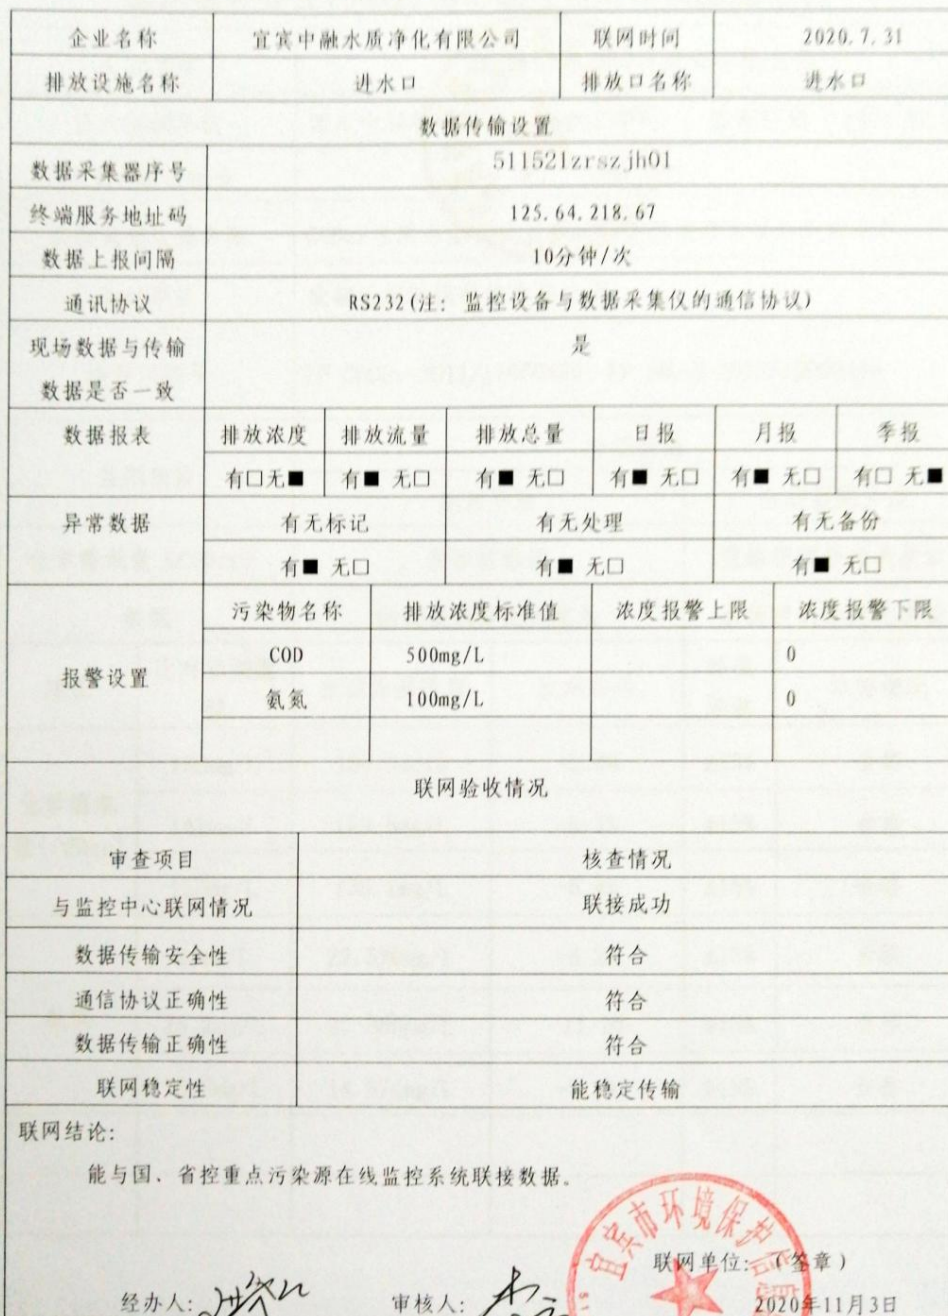 企业名称 宜宾中融水质净化有限公司 联网时间 2020.7.31
排放设施名称 进水口 排放口名称 进水口
数据传输设置
数据采集器序号 511521zrszjh01
终端服务地址码 125.64.218.67
数据上报间隔 10分钟/次
通讯协议 RS232(注: 监控设备与数据采集仪的通信协议)
现场数据与传输 是
数据是否一致
数据报表 排放浓度 排放流量 排放总量 日报 月报 季报
有□无■ 有■ 无□ 有■ 无□ 有■ 无□ 有■ 无□ 有□ 无■
异常数据 有无标记 有无处理 有无备份
有■ 无□ 有■ 无□ 有■ 无□
污染物名称 排放浓度标准值 浓度报警上限 浓度报警下限
报警设置
COD 500mg/L 0
氨氮 100mg/L 0
联网验收情况
审查项目 核查情况
与监控中心联网情况 联接成功
数据传输安全性 符合
通信协议正确性 符合
数据传输正确性 符合
联网稳定性 能稳定传输
联网结论:
能与国、省控重点污染源在线监控系统联接数据。
宜宾市环境保护信息
联网单位: (签章)
经办人: 审核人: 2020年11月3日